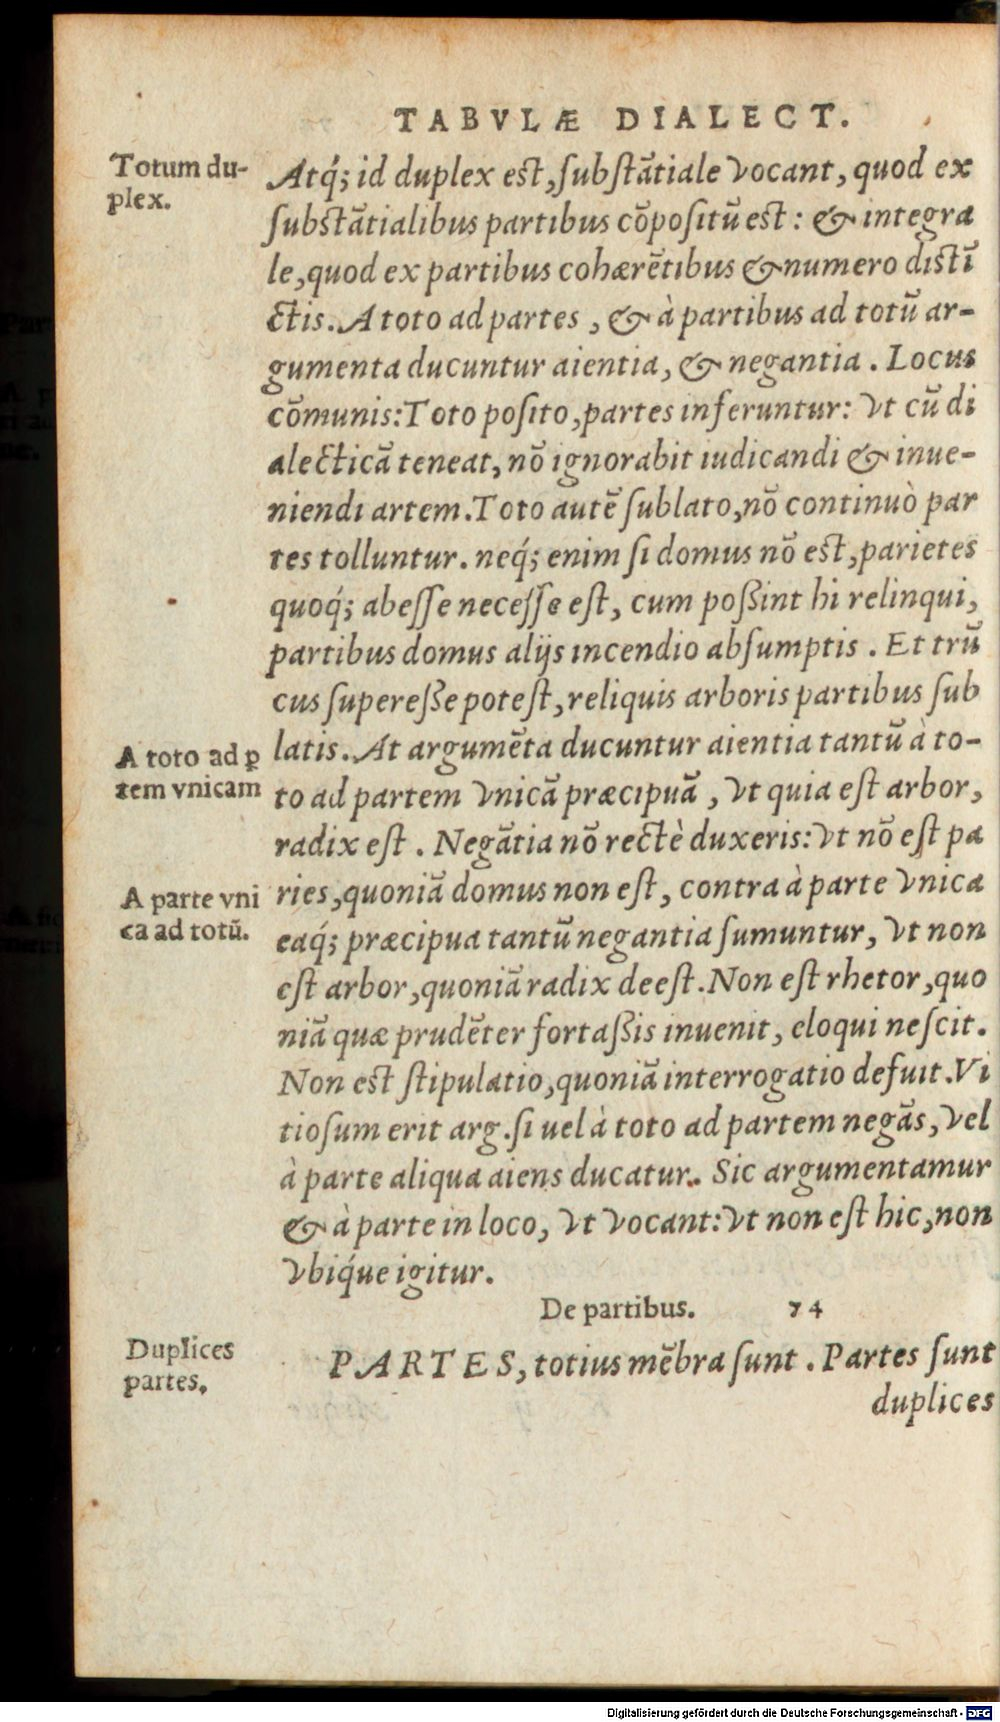 TABVLÆ DIALECT.
Totum du-
plex.
Atq́; id duplex est, ſubſtātiale vocant, quod ex
ſubstātialibus partibus cōpoſitū est: & integra
le, quod ex partibus cohærētibus & numero distī
ctis. A toto ad partes, & à partibus ad totū ar-
gumenta ducuntur aientia, & negantia. Locus
cōmunis: Toto poſito, partes inferuntur: vt cū di
alecticā teneat, nō ignorabit iudicandi & inue-
niendi artem. Toto autē ſublato, nō continuò par
tes tolluntur. neq́; enim ſi domus nō est, parietes
quoq́; abeſſe neceſſe eſt, cum poßint hi relinqui,
partibus domus alijs incendio abſumptis. Et trū
cus ſupereße poteſt, reliquis arboris partibus ſub
A toto ad ꝑ
tem vnicam
latis. At argumēta ducuntur aientia tantū à to-
to ad partem vnicā præcipuā, vt quia eſt arbor,
radix eſt. Negātia nō rectè duxeris: vt nō eſt pa
A parte vni
ca ad totū.
ries, quoniā domus non eſt, contra à parte vnica
eaq́; præcipua tantū negantia ſumuntur, vt non
eſt arbor, quoniā radix deeſt. Non eſt rhetor, quo
niā quæ prudēter fortaßis inuenit, eloqui neſcit.
Non est ſtipulatio, quoniā interrogatio defuit. Vi
tioſum erit arg. ſi uel à toto ad partem negās, vel
à parte aliqua aiens ducatur. Sic argumentamur
& à parte in loco, vt vocant: vt non eſt hic, non
vbiq́ue igitur.
De partibus. 74
Duplices
partes.
PARTES, totius mēbra ſunt. Partes ſunt
duplices
Digitalisierung gefördert durch die Deutsche Forschungsgemeinschaft - DFG